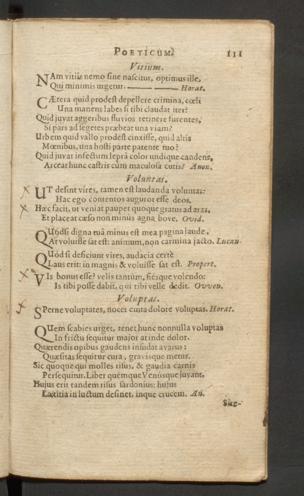 POETICUM. 111
Vitium.
NAm vitiis nemo sine nascitur, optimus ille,
Qui minimis urgetur. Horat.
CÆtera quid prodest depellere crimina, cœli
Una manens labes si tibi claudat iter?
Quid juvat aggeribus fluvios retinere furentes,
Si pars ad segetes præbeat una viam?
Urbem quid vallo prodest cinxisse, quid altis
Mœnibus, una hosti parte patente tuo?
Quid juvat infectum leprâ color undique candens,
Arceat hunc castris cùm maculosa cutis? Anon.
Voluntas.
UT desint vires, tamen est laudanda voluntas:
Hac ego contentos auguror esse deos.
Hæc facit, ut veniat pauper quoque gratus ad aras,
Et placeat cæso non minus agna bove. Ovid.
QUòdsi digna tuâ minus est mea pagina laude,
At voluisse sat est: animum, non carmina jacto. Lucan.
QUòd si deficiunt vires, audacia certè
Laus erit: in magnis & voluisse sat est. Propert.
VIs bonus esse? velis tantùm, fiésque volendo:
Is tibi posse dabit, qui tibi velle dedit. Owen.
Voluptas.
SPerne voluptates, nocet emta dolore voluptas. Horat.
QUem scabies urget, tenet hunc nonnulla voluptas
In frictu sequitur major at inde dolor.
Quærendis opibus gaudens insudat avarus:
Quæsitas sequitur cura, gravisque metus.
Sic quoque qui molles risus, & gaudia carnis
Persequitur, Liber quémque Venúsque juvant,
Hujus erit tandem risus sardonius: hujus
Lætitia in luctum desinet, inque crucem. An.